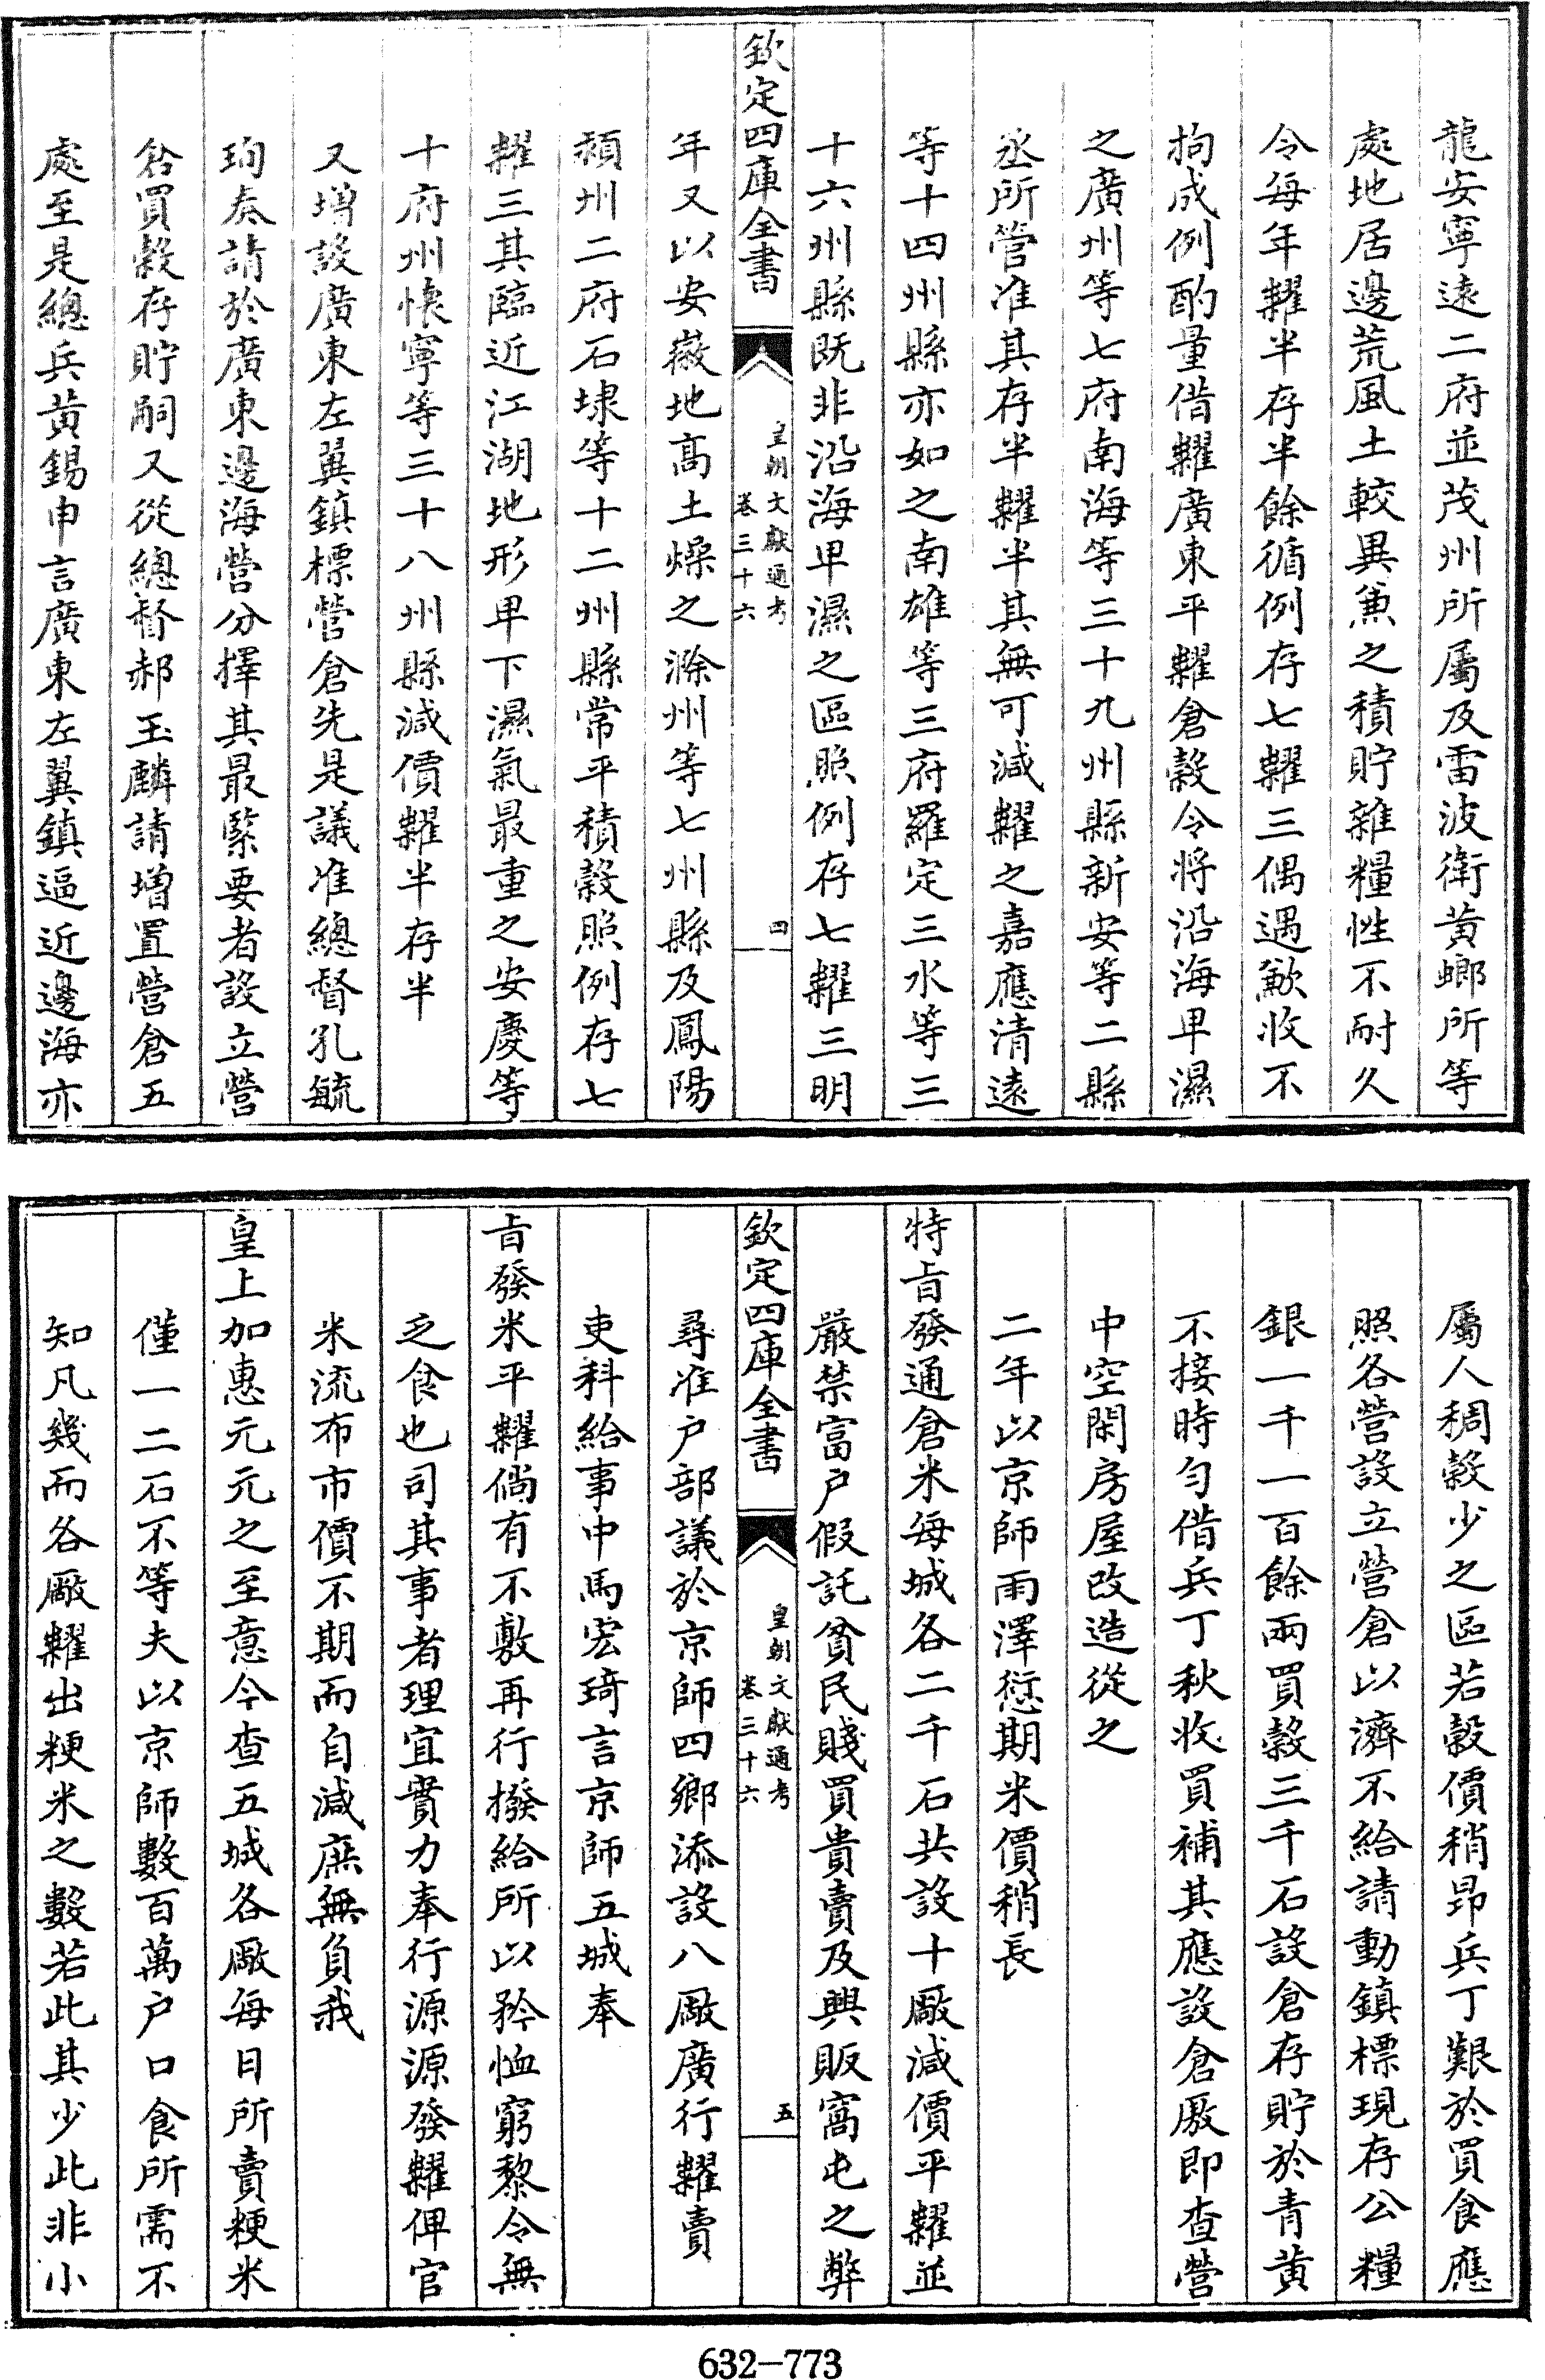 龍安寧遠二府並茂州所屬及雷波衛黃螂所等
處地居邊荒風土較異兼之積貯雜糧性不耐久
令每年糶半存半餘循例存七糶三偶遇歉收不
拘成例酌量借糶廣東平糶倉穀令將沿海卑濕
之廣州等七府南海等三十九州縣新安等二縣
丞所管准其存半糶半其無可減糶之嘉應清遠
等十四州縣亦如之南雄等三府羅定三水等三
十六州縣既非沿海卑濕之區照例存七糶三明
欽定四庫全書
皇朝文獻通考
卷三十六
四
年又以安徽地高土燥之滁州等七州縣及鳳陽
潁州二府石埭等十二州縣常平積穀照例存七
糶三其臨近江湖地形卑下濕氣最重之安慶等
十府州懷寧等三十八州縣減價糶半存半
又增設廣東左翼鎮標營倉先是議准總督孔毓
珣奏請於廣東邊海營分擇其最緊要者設立營
倉買穀存貯嗣又從總督郝玉麟請增置營倉五
處至是總兵黃錫申言廣東左翼鎮逼近邊海亦
屬人稠穀少之區若穀價稍昂兵丁艱於買食應
照各營設立營倉以濟不給請動鎮標現存公糧
銀一千一百餘兩買穀三千石設倉存貯於青黃
不接時勻借兵丁秋收買補其應設倉廒即查營
中空閑房屋改造從之
二年以京師雨澤愆期米價稍長
特旨發通倉米每城各二千石共設十廠減價平糶並
嚴禁富户假託貧民賤買貴賣及興販窩屯之弊
欽定四庫全書
皇朝文獻通考
卷三十六
五
尋准户部議於京師四鄉添設八廠廣行糶賣
吏科給事中馬宏琦言京師五城奉
旨發米平糶倘有不敷再行撥給所以矜恤窮黎令無
乏食也司其事者理宜實力奉行源源發糶俾官
米流布市價不期而自減庶無負我
皇上加惠元元之至意今查五城各廠每日所賣粳米
僅一二石不等夫以京師數百萬户口食所需不
知凡幾而各廠糶出粳米之數若此其少此非小
632-773